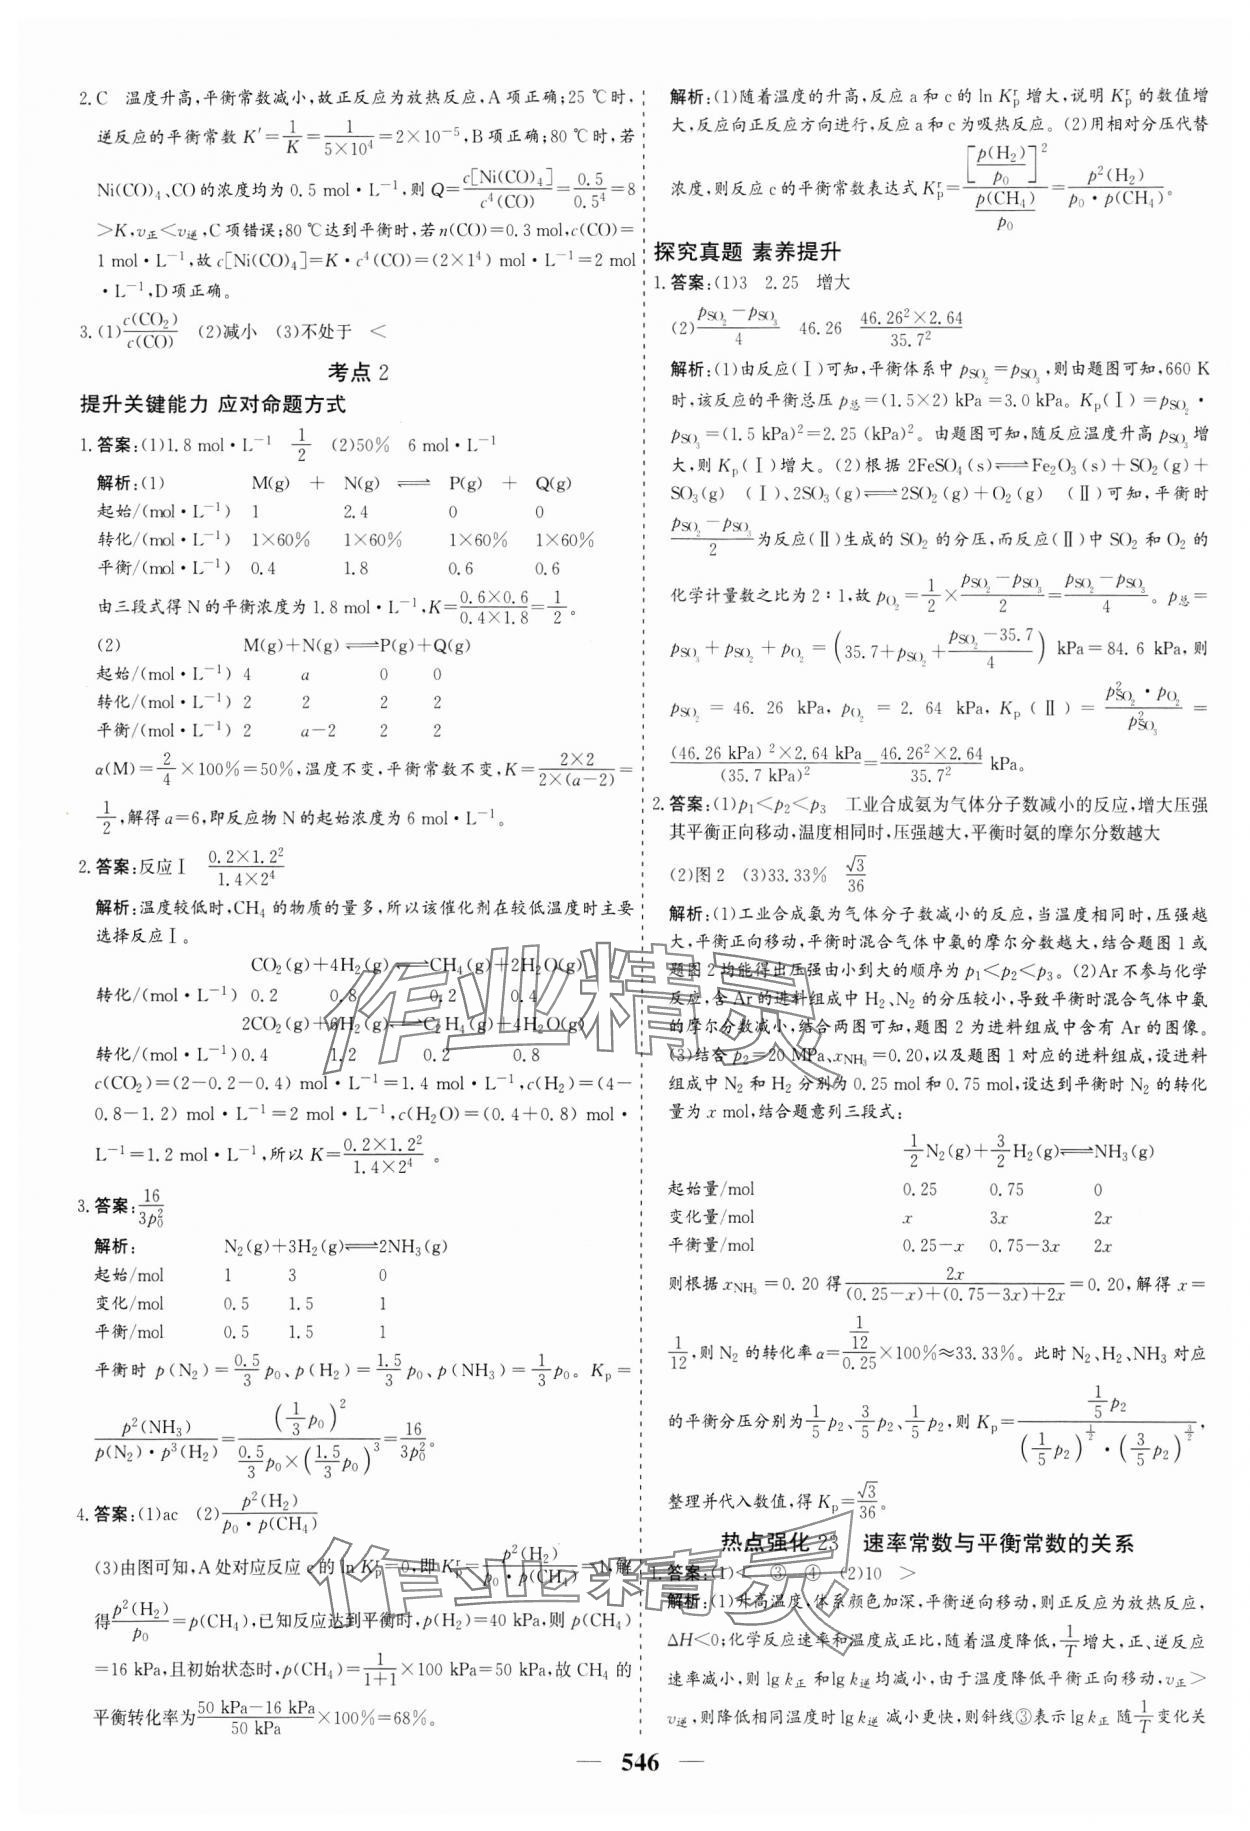 2.C 温度升高,平衡常数减小,故正反应为放热反应,A项正确;25 ℃时,
逆反应的平衡常数 K′=1/K=1/(5×10⁴)=2×10⁻⁵,B项正确;80 ℃时,若
Ni(CO)₄、CO的浓度均为0.5 mol·L⁻¹,则 Q=c[Ni(CO)₄]/c⁴(CO)=0.5/0.5⁴=8
>K,v正<v逆,C项错误;80 ℃达到平衡时,若n(CO)=0.3 mol,c(CO)=
1 mol·L⁻¹,故 c[Ni(CO)₄]=K·c⁴(CO)=(2×1⁴) mol·L⁻¹=2 mol
·L⁻¹,D项正确。
3.(1)c(CO₂)/c(CO) (2)减小 (3)不处于 <
考点 2
提升关键能力 应对命题方式
1.答案:(1)1.8 mol·L⁻¹ 1/2 (2)50% 6 mol·L⁻¹
解析:(1) M(g) + N(g) ⇌ P(g) + Q(g)
起始/(mol·L⁻¹) 1 2.4 0 0
转化/(mol·L⁻¹) 1×60% 1×60% 1×60% 1×60%
平衡/(mol·L⁻¹) 0.4 1.8 0.6 0.6
由三段式得N的平衡浓度为1.8 mol·L⁻¹,K=(0.6×0.6)/(0.4×1.8)=1/2。
(2) M(g)+N(g)⇌P(g)+Q(g)
起始/(mol·L⁻¹) 4 a 0 0
转化/(mol·L⁻¹) 2 2 2 2
平衡/(mol·L⁻¹) 2 a−2 2 2
α(M)=2/4×100%=50%,温度不变,平衡常数不变,K=(2×2)/(2×(a−2))=
1/2,解得a=6,即反应物N的起始浓度为6 mol·L⁻¹。
2.答案:反应Ⅰ (0.2×1.2²)/(1.4×2⁴)
解析:温度较低时,CH₄的物质的量多,所以该催化剂在较低温度时主要
选择反应Ⅰ。
CO₂(g)+4H₂(g)⇌CH₄(g)+2H₂O(g)
转化/(mol·L⁻¹) 0.2 0.8 0.2 0.4
2CO₂(g)+6H₂(g)⇌C₂H₄(g)+4H₂O(g)
转化/(mol·L⁻¹)0.4 1.2 0.2 0.8
c(CO₂)=(2−0.2−0.4) mol·L⁻¹=1.4 mol·L⁻¹,c(H₂)=(4−
0.8−1.2) mol·L⁻¹=2 mol·L⁻¹,c(H₂O)=(0.4+0.8) mol·
L⁻¹=1.2 mol·L⁻¹,所以 K=(0.2×1.2²)/(1.4×2⁴)。
3.答案:16/3p₀²
解析: N₂(g)+3H₂(g)⇌2NH₃(g)
起始/mol 1 3 0
变化/mol 0.5 1.5 1
平衡/mol 0.5 1.5 1
平衡时 p(N₂)=0.5/3 p₀、p(H₂)=1.5/3 p₀、p(NH₃)=1/3 p₀。Kp=
p²(NH₃)/(p(N₂)·p³(H₂))=(1/3 p₀)²/(0.5/3 p₀×(1.5/3 p₀)³)=16/3p₀²。
4.答案:(1)ac (2)p²(H₂)/(p₀·p(CH₄))
(3)由图可知,A处对应反应c的ln Kpʳ=0,即Kpʳ=p²(H₂)/(p₀·p(CH₄))=1,解
得p²(H₂)/p₀=p(CH₄),已知反应达到平衡时,p(H₂)=40 kPa,则 p(CH₄)
=16 kPa,且初始状态时,p(CH₄)=1/(1+1)×100 kPa=50 kPa,故CH₄的
平衡转化率为(50 kPa−16 kPa)/50 kPa×100%=68%。
解析:(1)随着温度的升高,反应a和c的ln Kpʳ增大,说明Kpʳ的数值增
大,反应向正反应方向进行,反应a和c为吸热反应。(2)用相对分压代替
浓度,则反应c的平衡常数表达式Kpʳ=[p(H₂)/p₀]²/(p(CH₄)/p₀)=p²(H₂)/(p₀·p(CH₄))。
探究真题 素养提升
1.答案:(1)3 2.25 增大
(2)(pSO₂−pSO₃)/4 46.26 (46.26²×2.64)/35.7²
解析:(1)由反应(Ⅰ)可知,平衡体系中pSO₂=pSO₃,则由题图可知,660 K
时,该反应的平衡总压p总=(1.5×2) kPa=3.0 kPa。Kp(Ⅰ)=pSO₂·
pSO₃=(1.5 kPa)²=2.25 (kPa)²。由题图可知,随反应温度升高pSO₃增
大,则Kp(Ⅰ)增大。(2)根据2FeSO₄(s)⇌Fe₂O₃(s)+SO₂(g)+
SO₃(g) (Ⅰ)、2SO₃(g)⇌2SO₂(g)+O₂(g) (Ⅱ)可知,平衡时
(pSO₂−pSO₃)/2为反应(Ⅱ)生成的SO₂的分压,而反应(Ⅱ)中SO₂和O₂的
化学计量数之比为2∶1,故pO₂=1/2×(pSO₂−pSO₃)/2=(pSO₂−pSO₃)/4。p总=
pSO₃+pSO₂+pO₂=(35.7+pSO₂+(pSO₂−35.7)/4) kPa=84.6 kPa,则
pSO₂=46.26 kPa,pO₂=2.64 kPa,Kp(Ⅱ)=(p²SO₂·pO₂)/p²SO₃=
((46.26 kPa)²×2.64 kPa)/(35.7 kPa)²=(46.26²×2.64)/35.7² kPa。
2.答案:(1)p₁<p₂<p₃ 工业合成氨为气体分子数减小的反应,增大压强
其平衡正向移动,温度相同时,压强越大,平衡时氨的摩尔分数越大
(2)图2 (3)33.33% √3/36
解析:(1)工业合成氨为气体分子数减小的反应,当温度相同时,压强越
大,平衡正向移动,平衡时混合气体中氨的摩尔分数越大,结合题图1或
题图2均能得出压强由小到大的顺序为p₁<p₂<p₃。(2)Ar不参与化学
反应,含Ar的进料组成中H₂、N₂的分压较小,导致平衡时混合气体中氨
的摩尔分数减小,结合两图可知,题图2为进料组成中含有Ar的图像。
(3)结合p₂=20 MPa、xNH₃=0.20,以及题图1对应的进料组成,设进料
组成中N₂和H₂分别为0.25 mol和0.75 mol,设达到平衡时N₂的转化
量为x mol,结合题意列三段式:
1/2N₂(g)+3/2H₂(g)⇌NH₃(g)
起始量/mol 0.25 0.75 0
变化量/mol x 3x 2x
平衡量/mol 0.25−x 0.75−3x 2x
则根据xNH₃=0.20得2x/((0.25−x)+(0.75−3x)+2x)=0.20,解得x=
1/12,则N₂的转化率α=(1/12)/0.25×100%≈33.33%。此时N₂、H₂、NH₃对应
的平衡分压分别为1/5 p₂、3/5 p₂、1/5 p₂,则Kp=(1/5 p₂)/((1/5 p₂)^(1/2)·(3/5 p₂)^(3/2)),
整理并代入数值,得Kp=√3/36。
热点强化 23 速率常数与平衡常数的关系
1.答案:(1)< ③ ④ (2)10 >
解析:(1)升高温度,体系颜色加深,平衡逆向移动,则正反应为放热反应,
ΔH<0;化学反应速率和温度成正比,随着温度降低,1/T增大,正、逆反应
速率减小,则lg k正和lg k逆均减小,由于温度降低平衡正向移动,v正>
v逆,则降低相同温度时lg k逆减小更快,则斜线③表示lg k正随1/T变化关
546
作业精灵
作业精灵